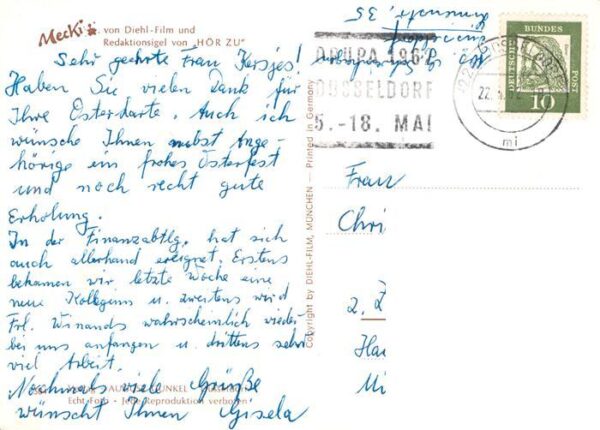 Mecki
von Diehl-Film und
Redaktionsigel von „HÖR ZU"
Sehr geehrte Frau Kersjes!
Haben Sie vielen Dank für
Ihre Osterkarte. Auch ich
wünsche Ihnen nebst Ange-
hörige ein frohes Osterfest
und noch recht gute
Erholung.
In der Finanzabtlg. hat sich
auch allerhand ereignet. Erstens
bekamen wir letzte Woche eine
neue Kollegin u. zweitens wird
Frl. Winands wahrscheinlich wieder
bei uns anfangen u. drittens sehr
viel Arbeit.
Nochmals viele Grüße
wünscht Ihnen Gisela
Echt-Foto - Jede Reproduktion verboten
Copyright by DIEHL-FILM, MÜNCHEN — Printed in Germany
35
DRUPA 1962
DÜSSELDORF
5.-18. MAI
DÜSSELDORF
22.
mi
DEUTSCHE BUNDESPOST
10
Frau
Chri
2. Z
Hau
Mi